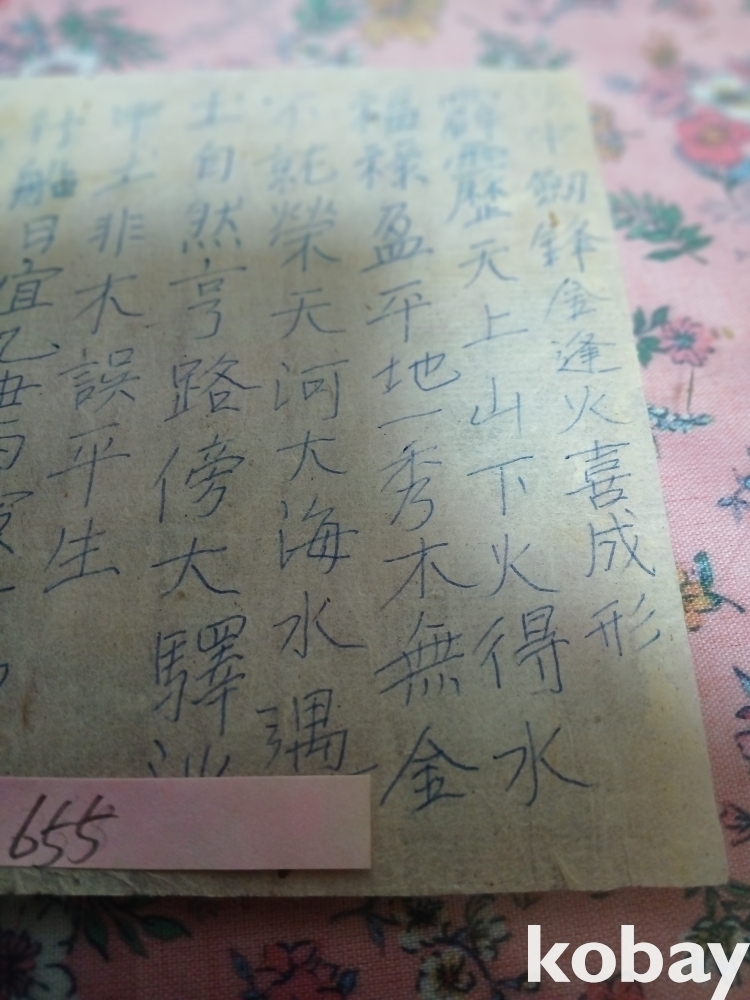 中劒鋒金逢火喜成形
霹靂天上山下火得水
福祿盈平地一秀木無金
不就榮天河大海水遇
土自然亨路傍大驛沙
中土非木誤平生
船日宜乙
655
kobay